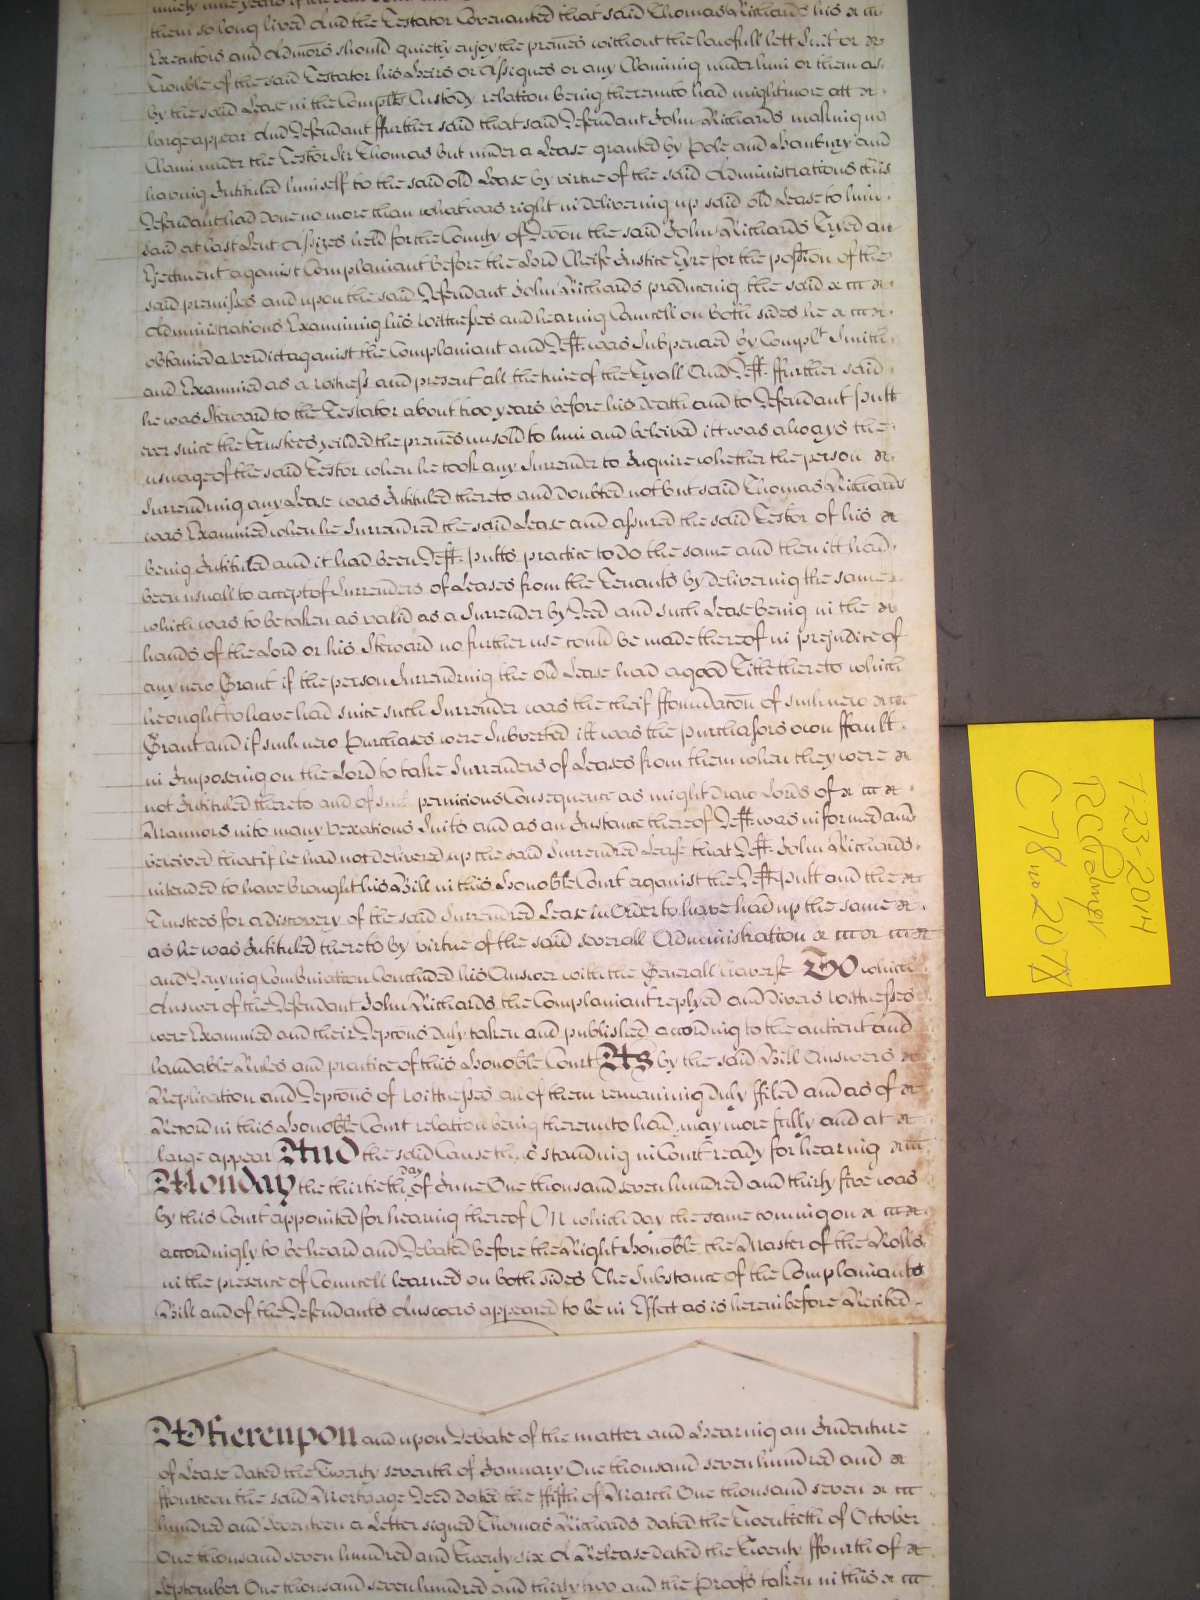 ninety nine years if
them so long lived And the Testator Covenanted that said Thomas Richards his &c
Executors and Admors should quietly enjoy the premes without the lawfull lett Suit or &c
Trouble of the said Testator his Heirs or Assignes or any Claiming under him or them as
by the said Lease in the Complts Custody relation being thereunto had might more att &c
large appear And Defendant ffurther said that said Defendant John Richards making no
Claim under the Testor Sir Thomas but under a Lease granted by Pole and Hanbury and
having Intituled himself to the said old Lease by virtue of the said Administrations this
Defendant had done no more than what was right in delivering up said old Lease to him
said at last Lent Assizes held for the County of Devon the said John Richards Tryed an
Ejectment against Complainant before the Lord Cheife Justice Eyre for the possion of the
said premisses and upon the said Defendant John Richards produceing the said &c
Administrations Examining his Wittnesses and hearing Councell on both sides he &c
obtained a verdict against the Complainant and Deft. was Subpenaed by Complt Smith
and Examined as a witness and present all the time of the Tryall And Deft. ffurther said
he was Steward to the Testator about two years before his death and to Defendant Putt
ever since the Trustees yeilded the premes unsold to him and beleived itt was always the
usuage of the said Testor when he took any Surrender to Inquire whether the person &c
Surrendring any Lease was Intituled thereto and Doubted not but said Thomas Richards
was Examined when he Surrendred the said Lease and assured the said Testor of his &c
being Intituled and it had been Deft. Putts practice to do the same and then itt had
been usuall to accept of Surrenders of Leases from the Tenants by delivering the same
which was to be taken as valid as a Surrender by Deed and such Lease being in the &c
hands of the Lord or his Steward no further use could be made thereof in prejudice of
any new Grant if the person Surrendring the old Lease had a good Title thereto which
he ought to have had since such Surrender was the cheif ffoundation of such new &c
Grant and if such new Purchases were Subverted itt was the purchasors own ffault
in Imposeing on the Lord to take Surrenders of Leases from them when they were &c
not Intituled thereto and of such pernicious Consequence as might draw Lords of &c
Mannors into many vexatious Suits and as an Instance thereof Deft. was informed and
beleived that if he had not delivered up the said Surrendred Lease that Deft. John Richards
intended to have brought his Bill in this Honoble Court against the Deft. Putt and the &c
Trustees for a discovery of the said Surrendred Lease in Order to have had up the same &c
as he was Intituled thereto by virtue of the said severall Administration &c
and Denying Combination Concluded his Answer with the Generall traverse To which
Answer of the Defendant John Richards the Complainant replyed and Divers Wittnesses
were Examined and their Deptons duly taken and published according to the antient and
laudable Rules and practice of this Honoble Court As by the said Bill Answers &c
Replication and Deptons of Wittnesses all of them remaining Duly ffiled and as of &c
Record in this Honoble Court relation being thereunto had may more fully and at &c
large appear And the said Cause thus standing in Court ready for hearing &c
Monday the thirtieth Day of June One thousand seven hundred and thirty ffive was
by this Court appointed for hearing thereof On which day the same coming on &c
accordingly to be heard and Debated before the Right Honoble the Master of the Rolls
in the presence of Councell learned on both sides The Substance of the Complainants
Bill and of the Defendants Answers appeared to be in Effect as is herein before Recited
Whereupon and upon Debate of the matter and Hearing an Indenture
of Lease dated the Twenty seventh of January One thousand seven hundred and &c
ffourteen the said Mortgage Deed dated the ffifth of March One thousand seven &c
hundred and Seventeen a Letter signed Thomas Richards dated the Twentieth of October
One thousand seven hundred and Twenty six A Release dated the Twenty ffourth of &c
September One thousand seven hundred and thirty two and the Proofs taken in this &c
7-23-2014
C 78